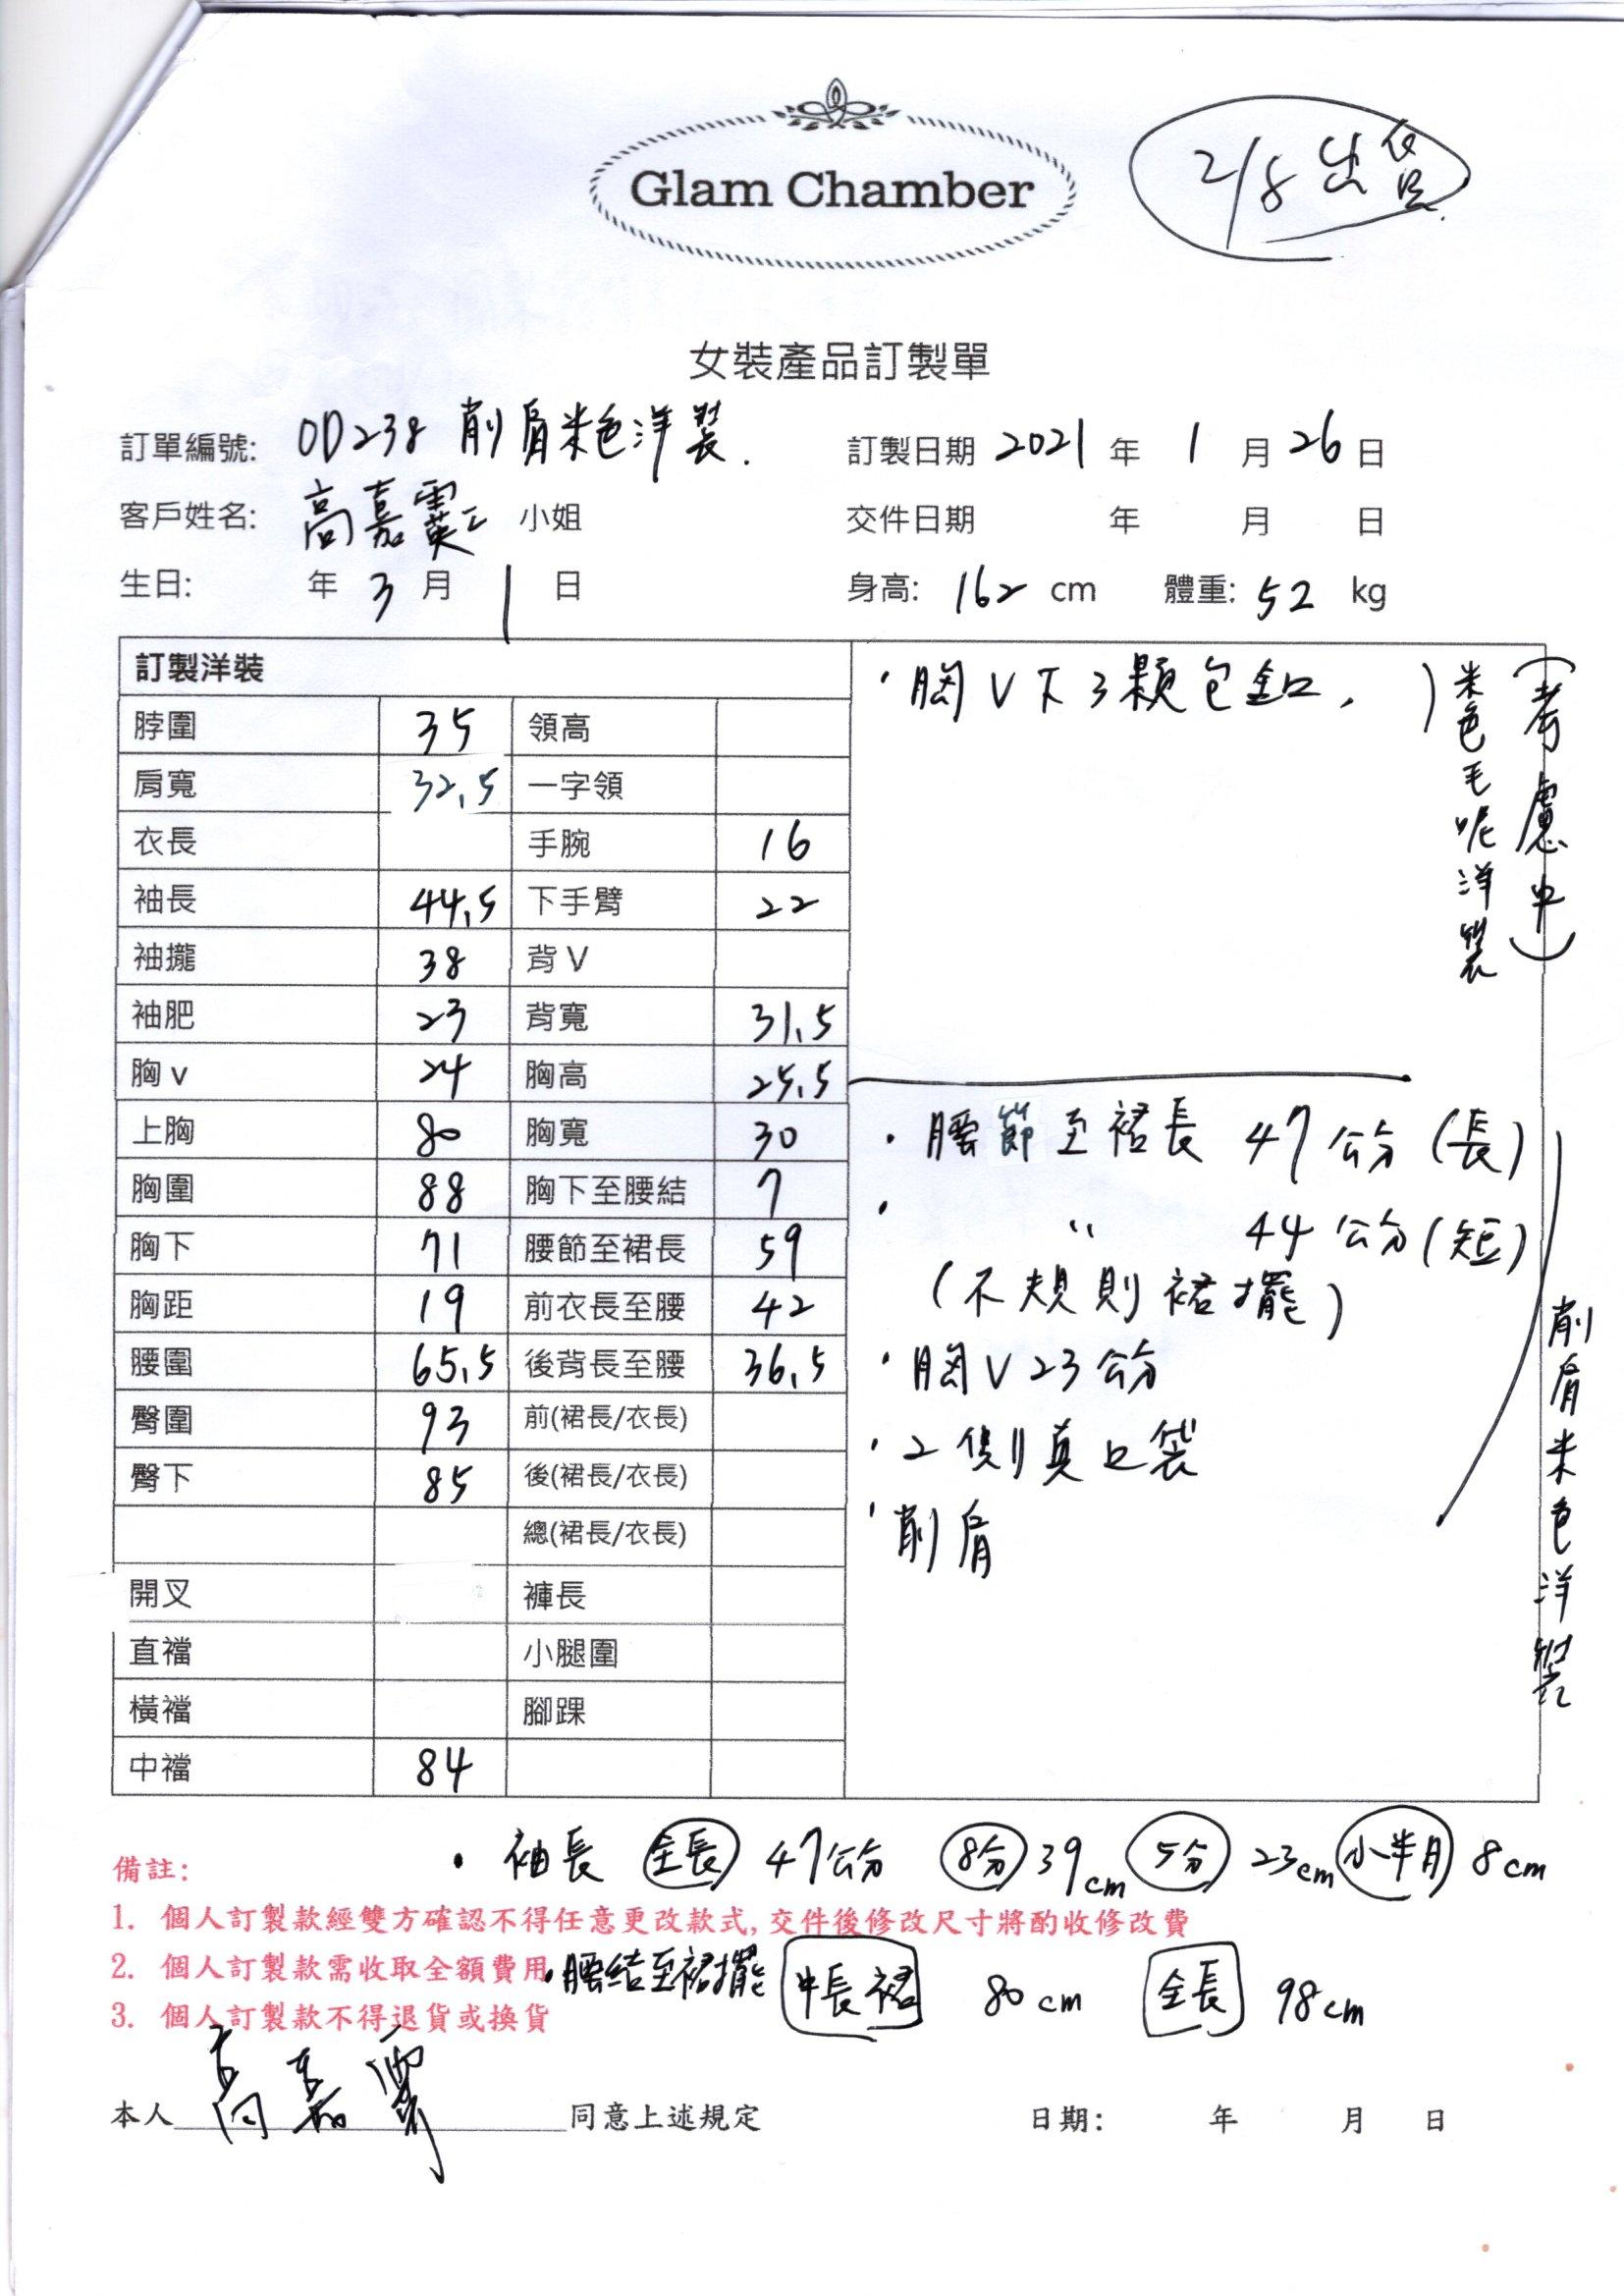 Glam Chamber
2/8 出貨
女裝產品訂製單
訂單編號: OD238 削肩米色洋裝. 訂製日期 2021 年 1 月 26 日
客戶姓名: 高嘉 小姐 交件日期 年 月 日
生日: 年 3 月 1 日 身高: 162 cm 體重: 52 kg
訂製洋裝
脖圍 35 領高
肩寬 32.5 一字領
衣長 手腕 16
袖長 44.5 下手臂 22
袖攏 38 背V
袖肥 23 背寬 31.5
胸v 24 胸高 25.5
上胸 80 胸寬 30
胸圍 88 胸下至腰結 7
胸下 71 腰節至裙長 59
胸距 19 前衣長至腰 42
腰圍 65.5 後背長至腰 36.5
臀圍 93 前(裙長/衣長)
臀下 85 後(裙長/衣長)
總(裙長/衣長)
開叉 褲長
直襠 小腿圍
橫襠 腳踝
中襠 84
·胸V下3顆包釦,
米色毛呢洋裝
(考慮中)
·腰節至裙長 47公分(長)
· " 44公分(短)
(不規則裙擺)
·胸V23公分
·2側真口袋
·削肩
削肩米色洋裝
·袖長 全長 47公分 8分 39cm 5分 23cm 小半月 8cm
備註:
1. 個人訂製款經雙方確認不得任意更改款式,交件後修改尺寸將酌收修改費
2. 個人訂製款需收取全額費用
·腰結至裙擺 中長裙 80cm 全長 98cm
3. 個人訂製款不得退貨或換貨
本人 高嘉 同意上述規定 日期: 年 月 日